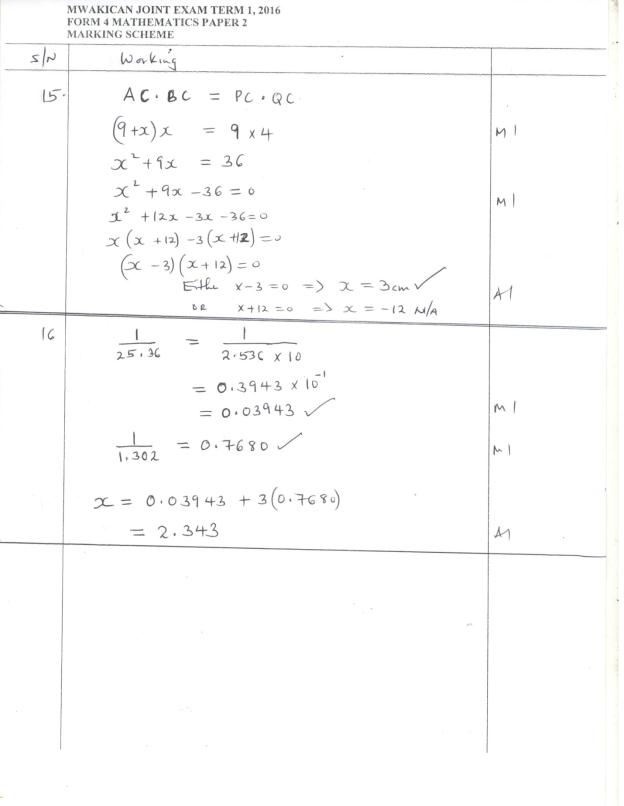 MWAKICAN JOINT EXAM TERM 1, 2016
FORM 4 MATHEMATICS PAPER 2
MARKING SCHEME
S/N Working
15. AC · BC = PC · QC
(9+x)x = 9 × 4 M1
x² + 9x = 36
x² + 9x − 36 = 0 M1
x² + 12x − 3x − 36 = 0
x(x + 12) − 3(x + 12) = 0
(x − 3)(x + 12) = 0
Eithe x − 3 = 0 => x = 3cm ✓ A1
OR x + 12 = 0 => x = −12 N/A
16 1/25.36 = 1/2.536 × 10
= 0.3943 × 10⁻¹
= 0.03943 ✓ M1
1/1.302 = 0.7680 ✓ M1
x = 0.03943 + 3(0.7680)
= 2.343 A1